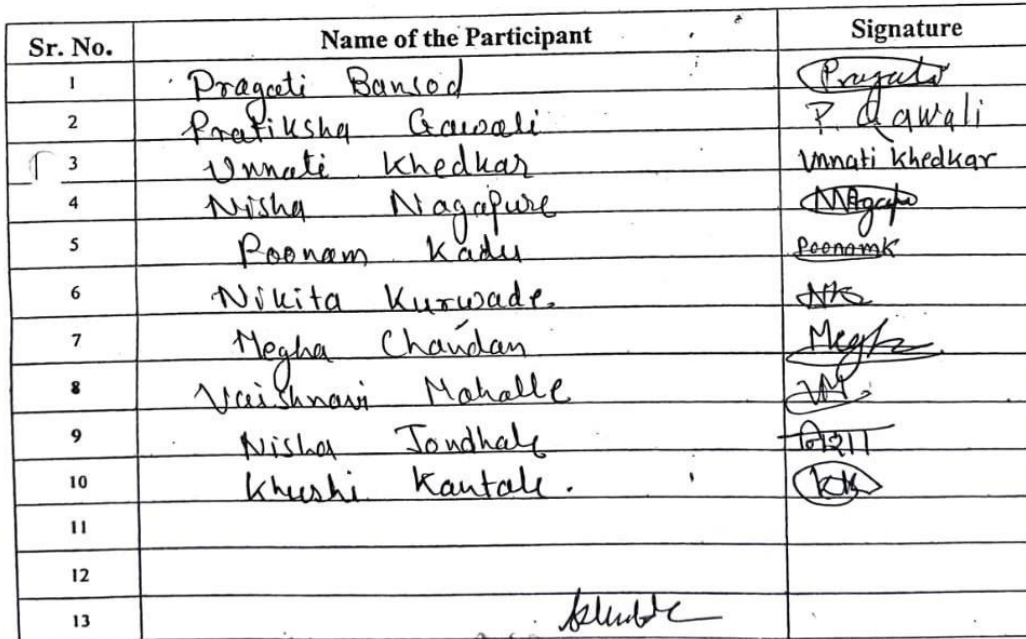 Sr. No. Name of the Participant Signature
1 Pragati Bansod Pragati
2 Pratiksha Gawali P. Gawali
3 Unnati Khedkar Unnati Khedkar
4 Nisha Nagapure
5 Poonam Kadu PoonamK
6 Nikita Kurwade. NK
7 Megha Chandan Megha
8 Vaishnavi Mahalle VM.
9 Nisha Jondhale निशा
10 Khushi Kantale. KK
11
12
13